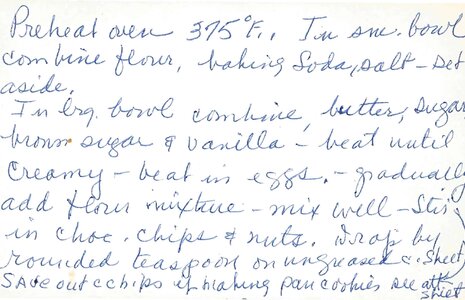 Preheat oven 375°F., In sm. bowl
combine flour, baking soda, salt – set
aside.
In lrg. bowl combine, butter, sugar
brown sugar & vanilla – beat until
creamy – beat in eggs. – gradually
add flour mixture – mix well – Stir
in choc. chips & nuts. Drop by
rounded teaspoon on ungreased c. sheet
Save out c chips if making pan cookies see att
sheet